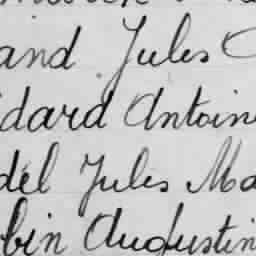 and Jules C
dard Antoin
del Jules Ma
bin Augustin